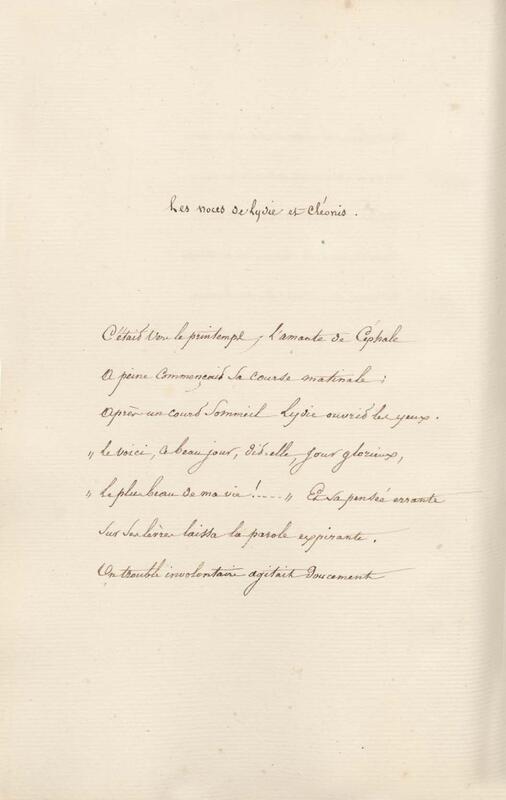 Les noces de Lydie et Cléonis.
C'était vers le printemps ; l'amante de Céphale
A peine commençait sa course matinale ;
Après un court sommeil Lydie ouvrit les yeux.
" le voici, ce beau jour, dit-elle, jour glorieux,
" le plus beau de ma vie !..... " Et sa pensée errante
sur ses lèvres laissa la parole expirante.
Un trouble involontaire agitait doucement